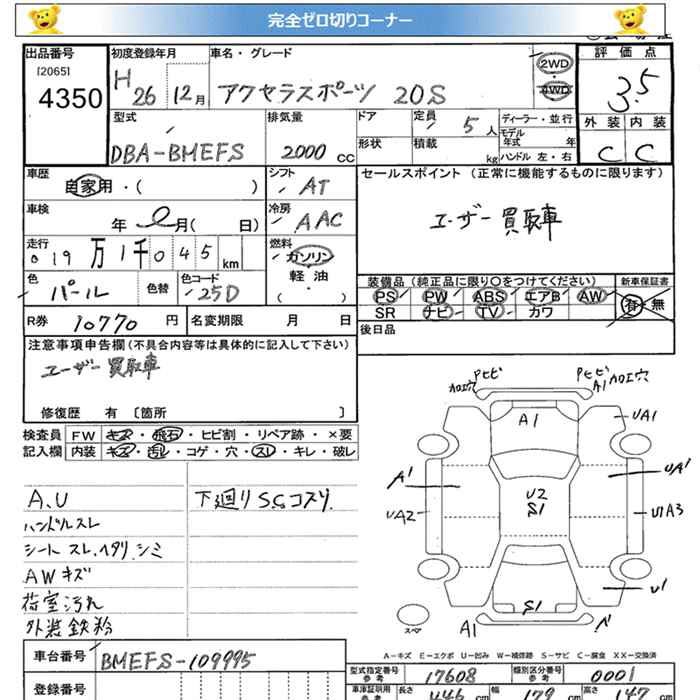 完全ゼロ切りコーナー
出品番号
[2065]
4350
初度登録年月
H 26 12月
車名・グレード
アクセラスポーツ 20S
2WD
4WD
評価点
3.5
外装 内装
C C
型式
DBA-BMEFS
排気量
2000 cc
ドア
形状
定員
5人
積載
kg
ディーラー・並行
モデル年式 年
ハンドル 左・右
車歴
自家用・( )
シフト
AT
セールスポイント (正常に機能するものに限ります)
ユーザー買取車
車検
年 月( 日)
冷房
AAC
走行
19万1千045km
燃料
ガソリン
軽油
( ・ )
色
パール
色替
色コード
25D
装備品 (純正品に限り〇をつけてください)
新車保証書
PS PW ABS エアB AW
有・無
SR ナビ TV カワ
R券 10770円
名変期限 月 日
後日品
注意事項申告欄 (不具合内容等は具体的に記入して下さい)
ユーザー買取車
修復歴 有 〔箇所 〕
検査員記入欄
FW キズ・飛石・ヒビ割・リペア跡・×要
内装 キズ・汚れ・コゲ・穴・スレ・キレ・破レ
A,U
下廻りSGコスリ
ハンドルスレ
シート スレ,ヘタリ,シミ
AWキズ
荷室汚れ
外装鉄粉
Pヒビ
加工穴
Pヒビ
A1 加工穴
A1
UA1
A1
UA1
UA2
U2
S1
U1A3
U1
S1
A1
スペア
A-キズ E-エクボ U-凹み W-補修跡 S-サビ C-腐食 XX-交換済
車台番号
BMEFS-109995
登録番号
型式指定番号
参考
17608
類別区分番号
参考
0001
車庫証明用
参考
長さ 446cm
幅 179cm
高さ 147cm